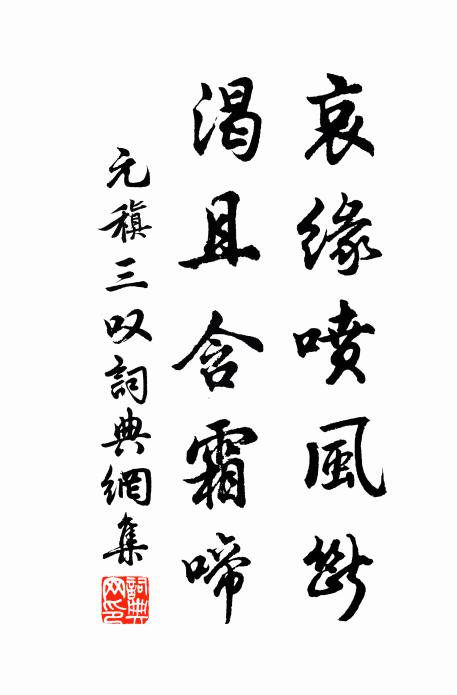 哀緣噴風斷
渴且含霜啼
元稹三叹詞典網集
詞典网印